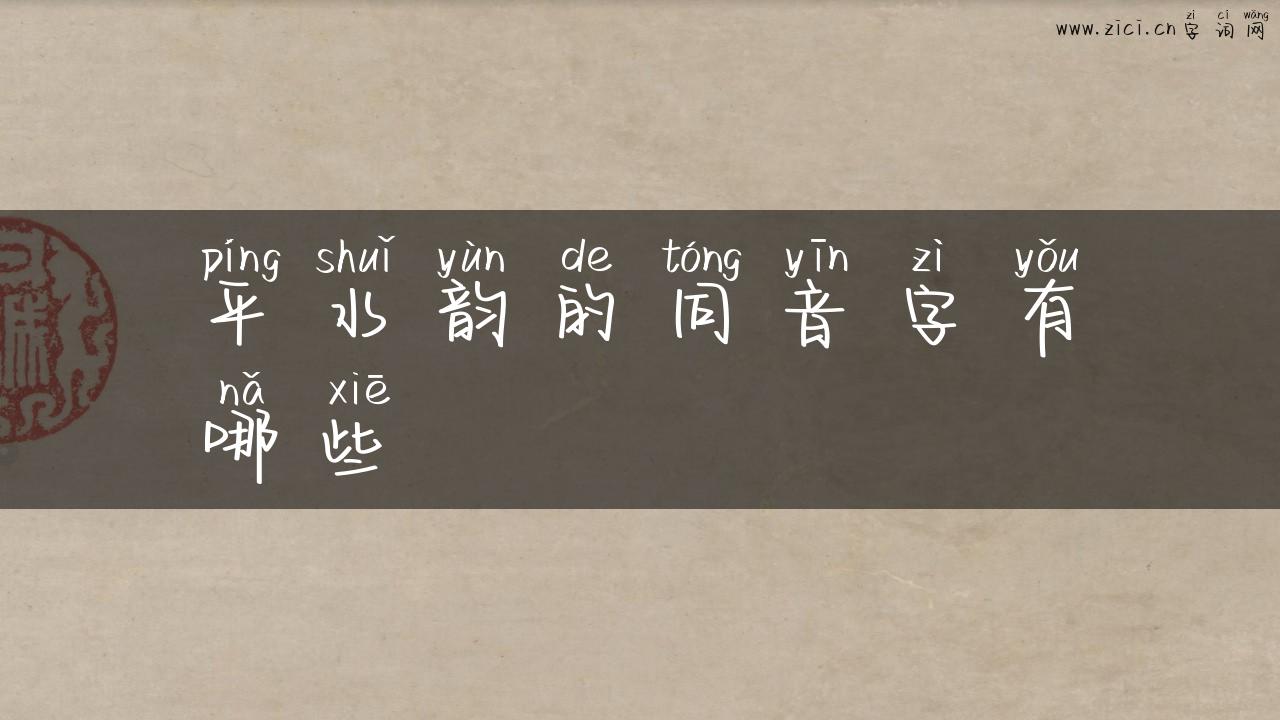 zì cí wǎng
www.zici.cn 字词网
píng shuǐ yùn de tóng yīn zì yǒu
平水韵的同音字有
nǎ xiē
哪些